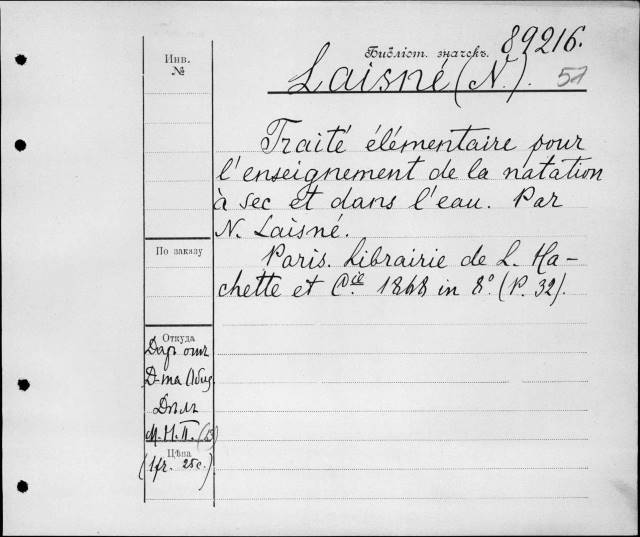 Библіот. значекъ. 89216.
Laisné (N.). 57
Инв.
№
Traité élémentaire pour
l'enseignement de la natation
à sec et dans l'eau. Par
N. Laisné.
Paris. Librairie de L. Ha-
chette et Cie. 1868 in 8º. (P. 32).
По заказу
Откуда
Даръ отъ
Д-та Общ.
Дѣлъ
М. Н. П. (13)
Цѣна
(1 fr. 25 c.)